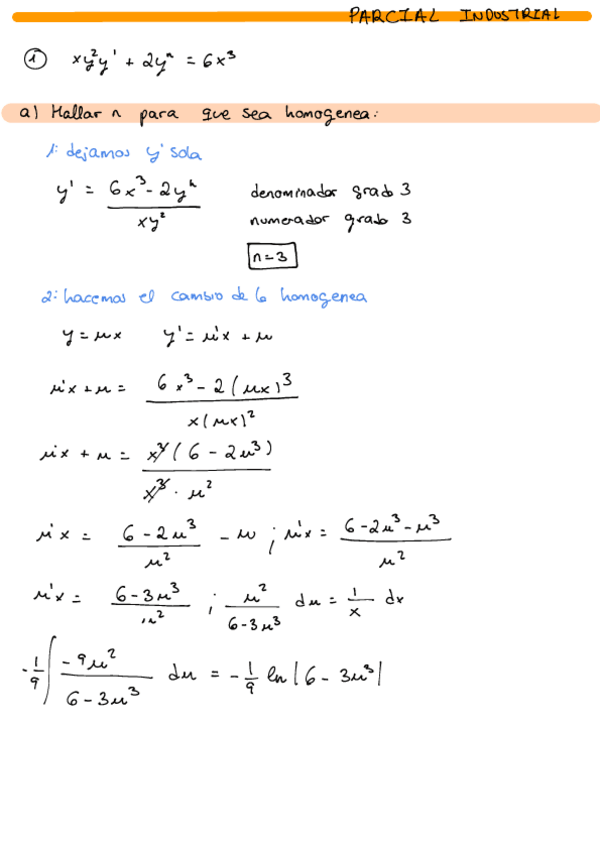 PARCIAL INDUSTRIAL
① xy²y' + 2yⁿ = 6x³
a) Hallar n para que sea homogenea:
1: dejamos y' sola
y' = (6x³ - 2yⁿ) / (xy²) denominador grado 3
numerador grado 3
n=3
2: hacemos el cambio de la homogenea
y = ux y' = u'x + u
u'x + u = (6x³ - 2(ux)³) / (x(ux)²)
u'x + u = (x³(6 - 2u³)) / (x³ · u²)
u'x = (6 - 2u³) / u² - u ; u'x = (6 - 2u³ - u³) / u²
u'x = (6 - 3u³) / u² ; u² / (6 - 3u³) du = 1/x dx
-1/9 ∫ (-9u²) / (6 - 3u³) du = -1/9 ln|6 - 3u³|